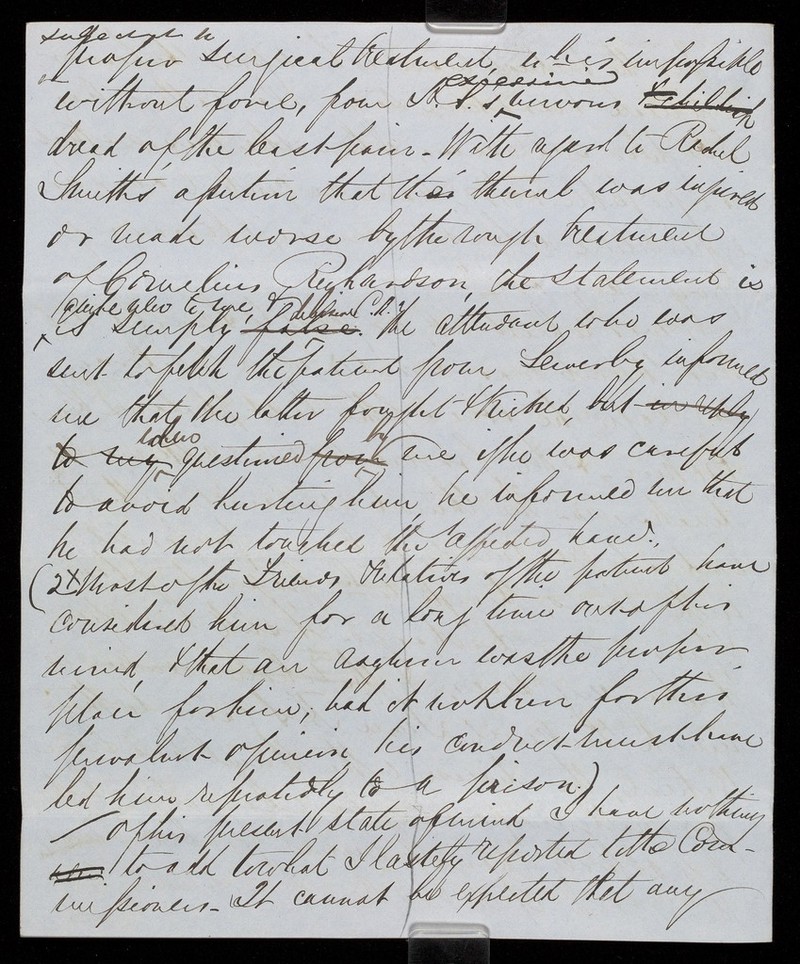 proper surgical treatment, wh. is impossible
excessive
without force, from R. S.'s nervous & childish
dread of the least pain - With regard to Rachel
Smith's assertion that the thumb was injured
or made worse by the rough treatment
of Cornelius Richardson, the statement is
is simply false. The attendant who was
sent to fetch the patient from Sewerby informed
me that the latter fought & kicked, but in reply
when by
to my questioned from me if he was careful
to avoid hurting him, he informed me that
he had not touched the affected hand.
(2 Most of the Friends & relatives of the patient have
considered him for a long time out of his
mind, & that an asylum was the proper
place for him; had it not been for this
prevalent opinion, his conduct must have
led him repeatedly to a prison.)
Of his present state of mind I have nothing
to add to what I lastly reported to the Com-
missioners - It cannot be expected that any